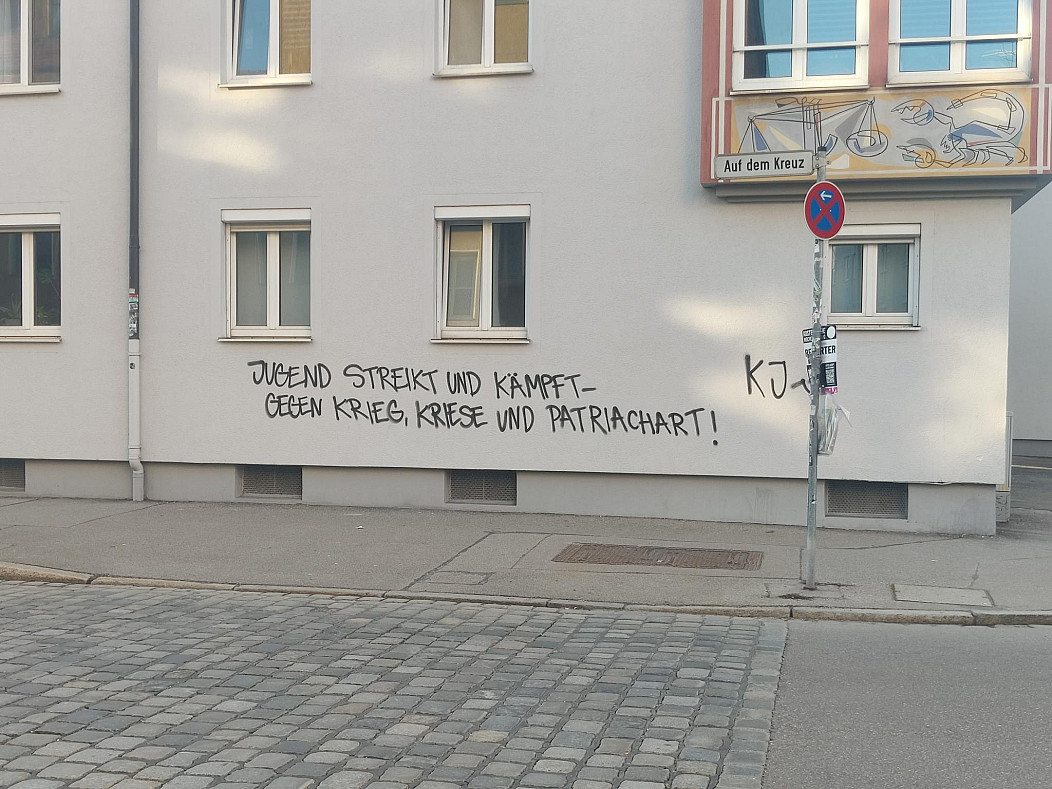 Auf dem Kreuz
JUGEND STREIKT UND KÄMPFT-
GEGEN KRIEG, KRIESE UND PATRIACHART!
KJ